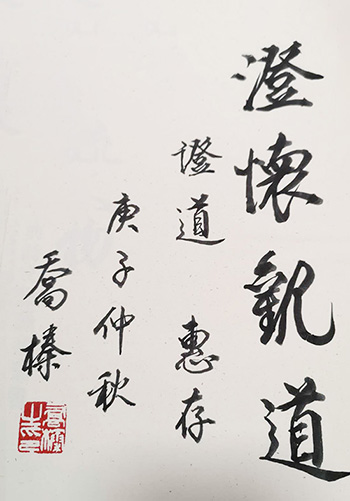 澄懷觀道
證道 惠存
庚子仲秋
喬榛